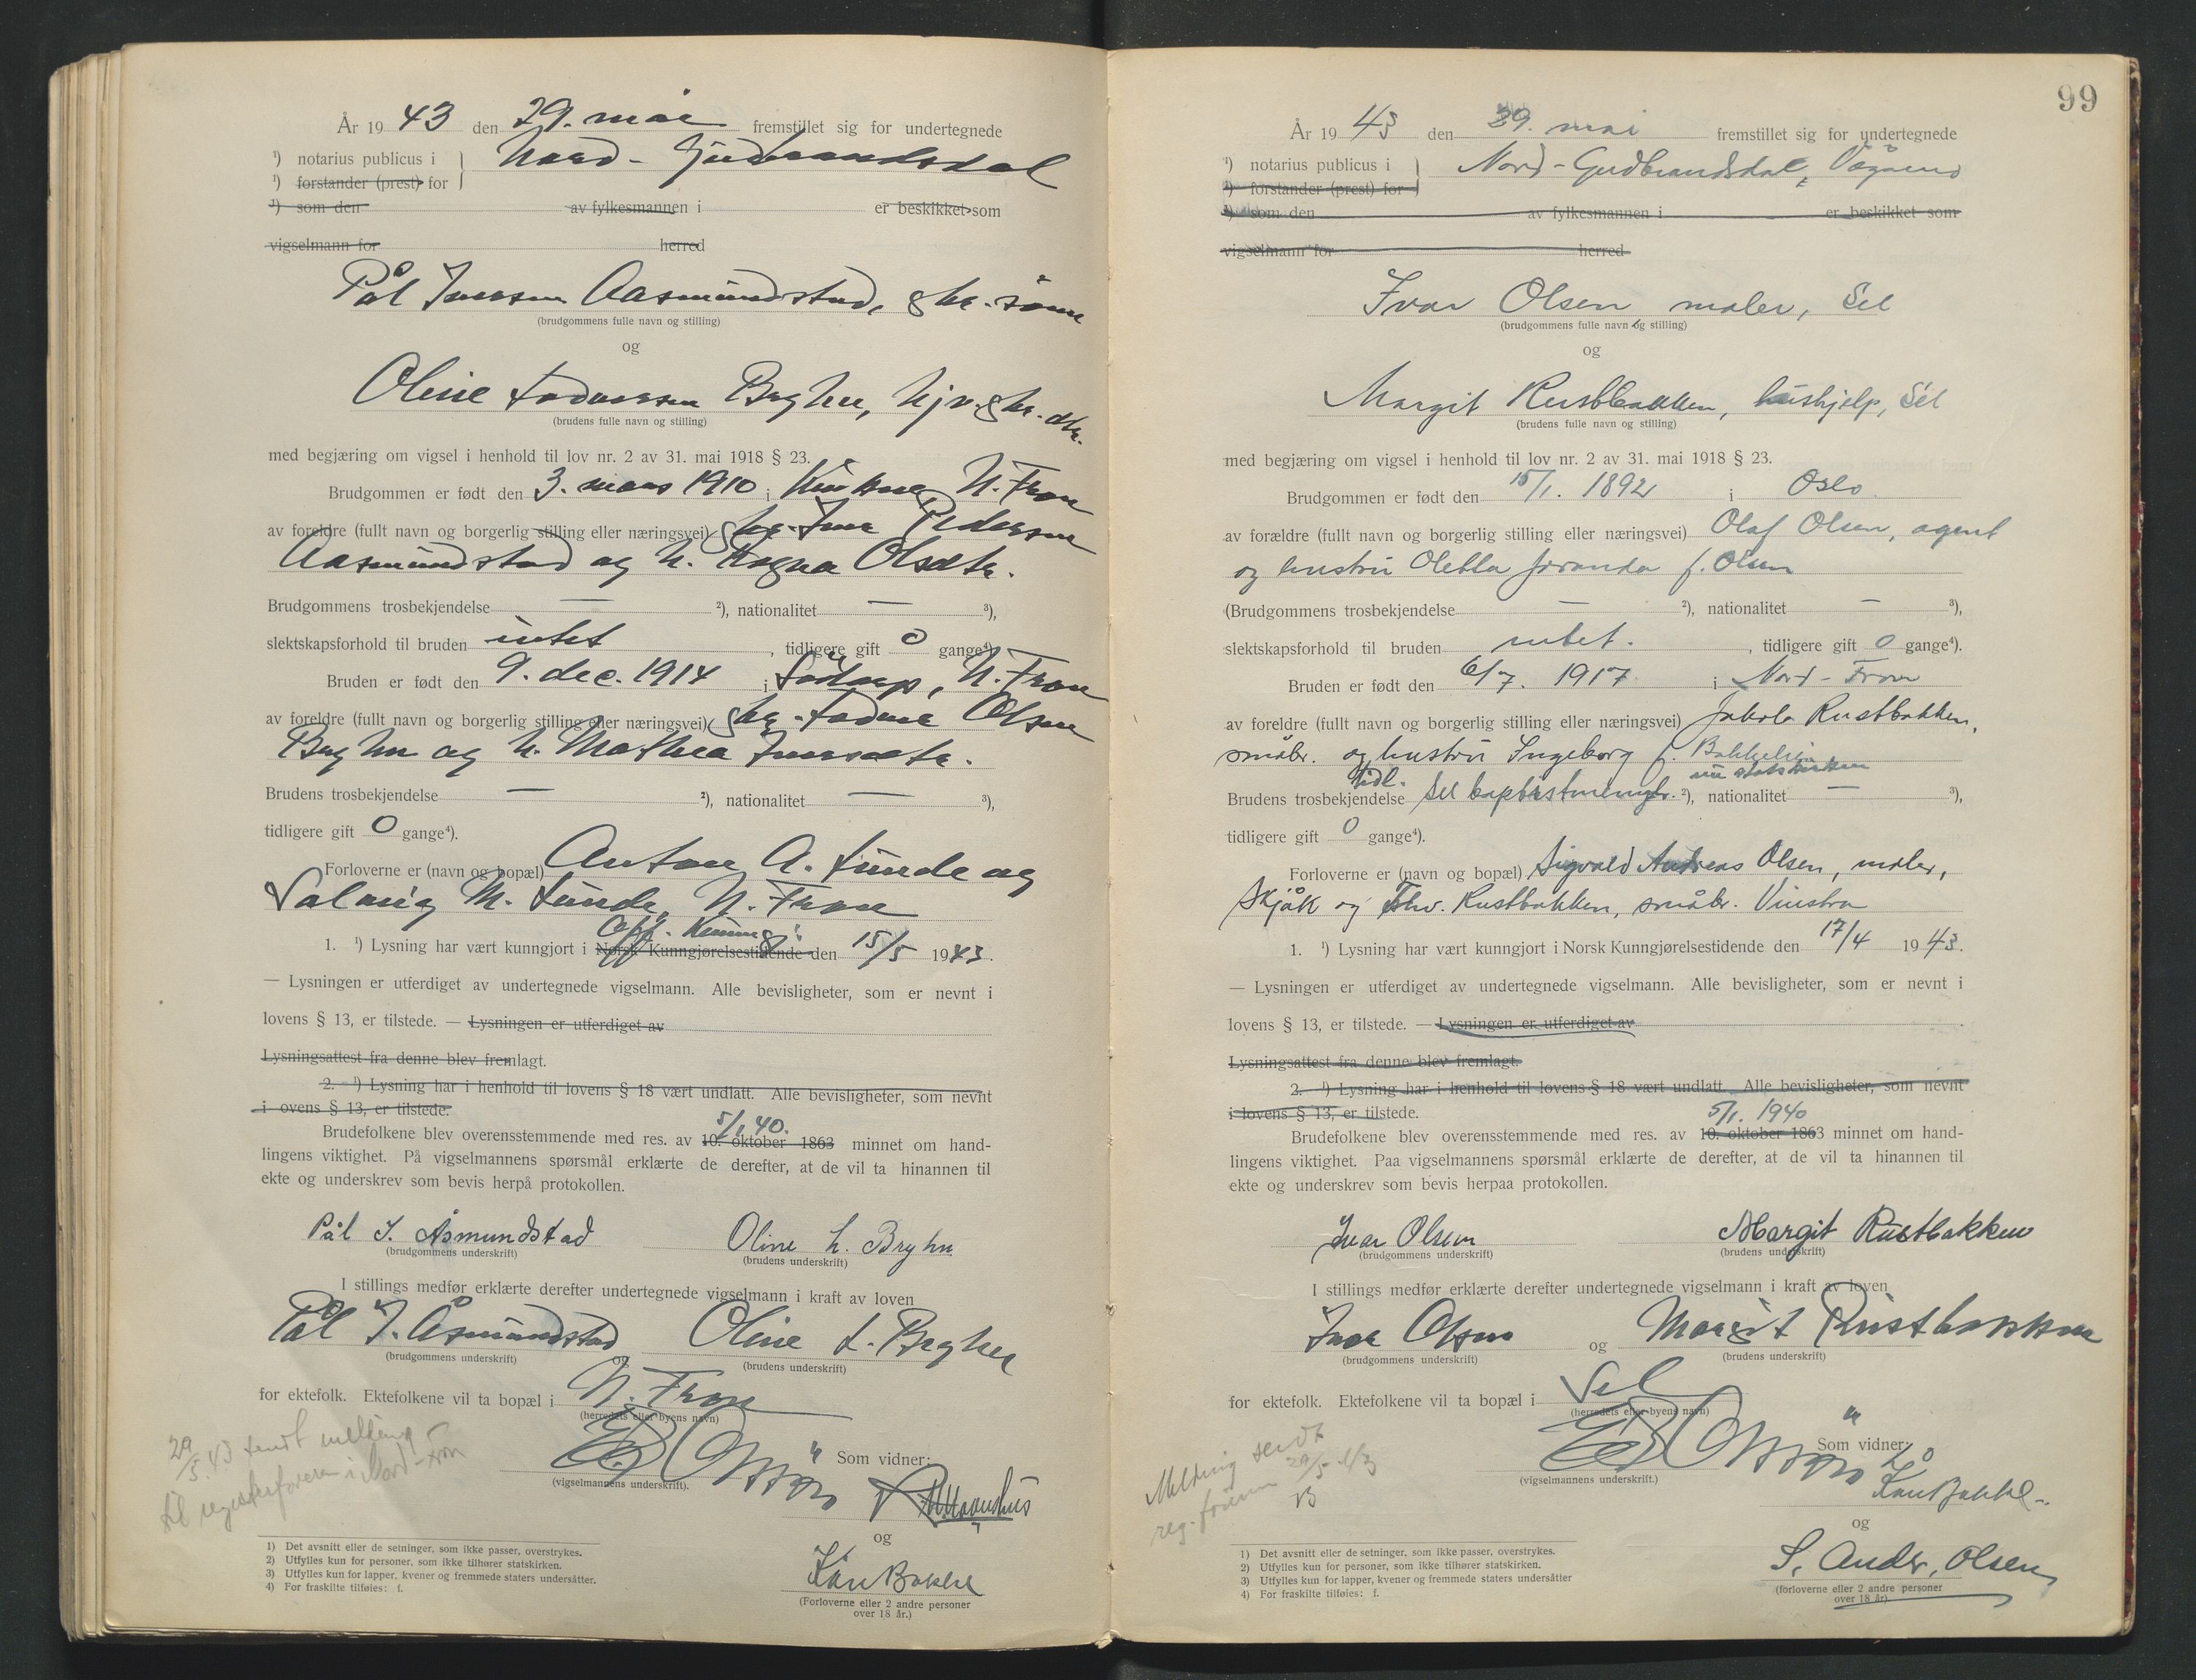 År 19 43 den 29. mai fremstillet sig for undertegnede
¹) notarius publicus i } Nord-Gudbrandsdal
¹) forstander (prest) for
¹) som den av fylkesmannen i er beskikket som
vigselmann for herred
Pål Iversen Aasmundstad, gbr. sønn
(brudgommens fulle navn og stilling)
og
Oline Bryhn, hjv. gbr. dtr.
(brudens fulle navn og stilling)
med begjæring om vigsel i henhold til lov nr. 2 av 31. mai 1918 § 23.
Brudgommen er født den 3. mars 1910 i N. Fron
av foreldre (fullt navn og borgerlig stilling eller næringsvei) gbr. Iver Pedersen
Aasmundstad og h. Ragna Olsdtr.
Brudgommens trosbekjendelse — ²), nationalitet — ³),
slektskapsforhold til bruden intet , tidligere gift 0 gange⁴).
Bruden er født den 9. dec. 1914 i Sødorp, N. Fron
av foreldre (fullt navn og borgerlig stilling eller næringsvei) gbr. Olsen
Bryhn og h. Mathea Iversdtr.
Brudens trosbekjendelse — ²), nationalitet — ³),
tidligere gift 0 gange⁴).
Forloverne er (navn og bopæl) Anton A. Sunde og
Solveig M. Sunde, N. Fron
1. ¹) Lysning har vært kunngjort i Norsk Kunngjørelsestidende den 15/5 1943.
— Lysningen er utferdiget av undertegnede vigselmann. Alle bevisligheter, som er nevnt i
lovens § 13, er tilstede. — Lysningen er utferdiget av
Lysningsattest fra denne blev fremlagt.
2. ¹) Lysning har i henhold til lovens § 18 vært undlatt. Alle bevisligheter, som nevnt
i ovens § 13, er tilstede.
5/1.40.
Brudefolkene blev overensstemmende med res. av 10. oktober 1863 minnet om hand-
lingens viktighet. På vigselmannens spørsmål erklærte de derefter, at de vil ta hinannen til
ekte og underskrev som bevis herpå protokollen.
Pål I. Åsmundstad Oline L. Bryhn
(brudgommens underskrift) (brudens underskrift)
I stillings medfør erklærte derefter undertegnede vigselmann i kraft av loven
Pål I. Åsmundstad Oline L. Bryhn
(brudgommens underskrift) og (brudens underskrift)
for ektefolk. Ektefolkene vil ta bopæl i N. Fron
(herredets eller byens navn)
29/5.43 sendt melding
til registerføreren i Nord-Fron
Som vidner:
(vigselmannens underskrift).
og
Kåre Bakke
(Forloverne eller 2 andre personer
over 18 år.)
1) Det avsnitt eller de setninger, som ikke passer, overstrykes.
2) Utfylles kun for personer, som ikke tilhører statskirken.
3) Utfylles kun for lapper, kvener og fremmede staters undersåtter.
4) For fraskilte tilføies: f.
99
År 19 43 den 29. mai fremstillet sig for undertegnede
¹) notarius publicus i } Nord-Gudbrandsdal, Vågåmo
¹) forstander (prest) for
¹) som den av fylkesmannen i er beskikket som
vigselmann for herred
Ivar Olsen maler, Sel
(brudgommens fulle navn og stilling)
og
Margit Rustbakken, hushjelp, Sel
(brudens fulle navn og stilling)
med begjæring om vigsel i henhold til lov nr. 2 av 31. mai 1918 § 23.
Brudgommen er født den 15/1. 1892 i Oslo
av forældre (fullt navn og borgerlig stilling eller næringsvei) Olaf Olsen, agent
og hustru Oletta f. Olsen
(Brudgommens trosbekjendelse — ²), nationalitet — ³),
slektskapsforhold til bruden intet. , tidligere gift 0 gange⁴).
Bruden er født den 6/7. 1917 i Nord-Fron
av foreldre (fullt navn og borgerlig stilling eller næringsvei) Jakob Rustbakken,
småbr. og hustru Ingeborg f. Bakkelien
tidl. nu statskirken
Brudens trosbekjendelse Sel baptistmenigh. ²), nationalitet — ³),
tidligere gift 0 gange⁴).
Forloverne er (navn og bopæl) Sigvald Andreas Olsen, maler,
Skjåk og Rustbakken, småbr. Vinstra
1. ¹) Lysning har vært kunngjort i Norsk Kunngjørelsestidende den 17/4 1943.
— Lysningen er utferdiget av undertegnede vigselmann. Alle bevisligheter, som er nevnt i
lovens § 13, er tilstede. — Lysningen er utferdiget av
Lysningsattest fra denne blev fremlagt.
2. ¹) Lysning har i henhold til lovens § 18 vært undlatt. Alle bevisligheter, som nevnt
i lovens § 13, er tilstede.
5/1. 1940
Brudefolkene blev overensstemmende med res. av 10. oktober 1863 minnet om hand-
lingens viktighet. Paa vigselmannens spørsmål erklærte de derefter, at de vil ta hinannen til
ekte og underskrev som bevis herpaa protokollen.
Ivar Olsen Margit Rustbakken
(brudgommens underskrift) (brudens underskrift)
I stillings medfør erklærte derefter undertegnede vigselmann i kraft av loven
Ivar Olsen og Margit Rustbakken
(brudgommens underskrift) (brudens underskrift)
for ektefolk. Ektefolkene vil ta bopæl i Sel
(herredets eller byens navn)
Melding sendt
reg.føreren 29/5-43
Som vidner:
(vigselmannens underskrift.)
Kåre Bakke
og
S. Andr. Olsen
(forloverne eller 2 andre personer
over 18 år)
1) Det avsnitt eller de setninger, som ikke passer, overstrykes.
2) Utfylles kun for personer, som ikke tilhører statskirken.
3) Utfylles kun for lapper, kvener og fremmede staters undersåtter
4) For fraskilte tilføies: f.